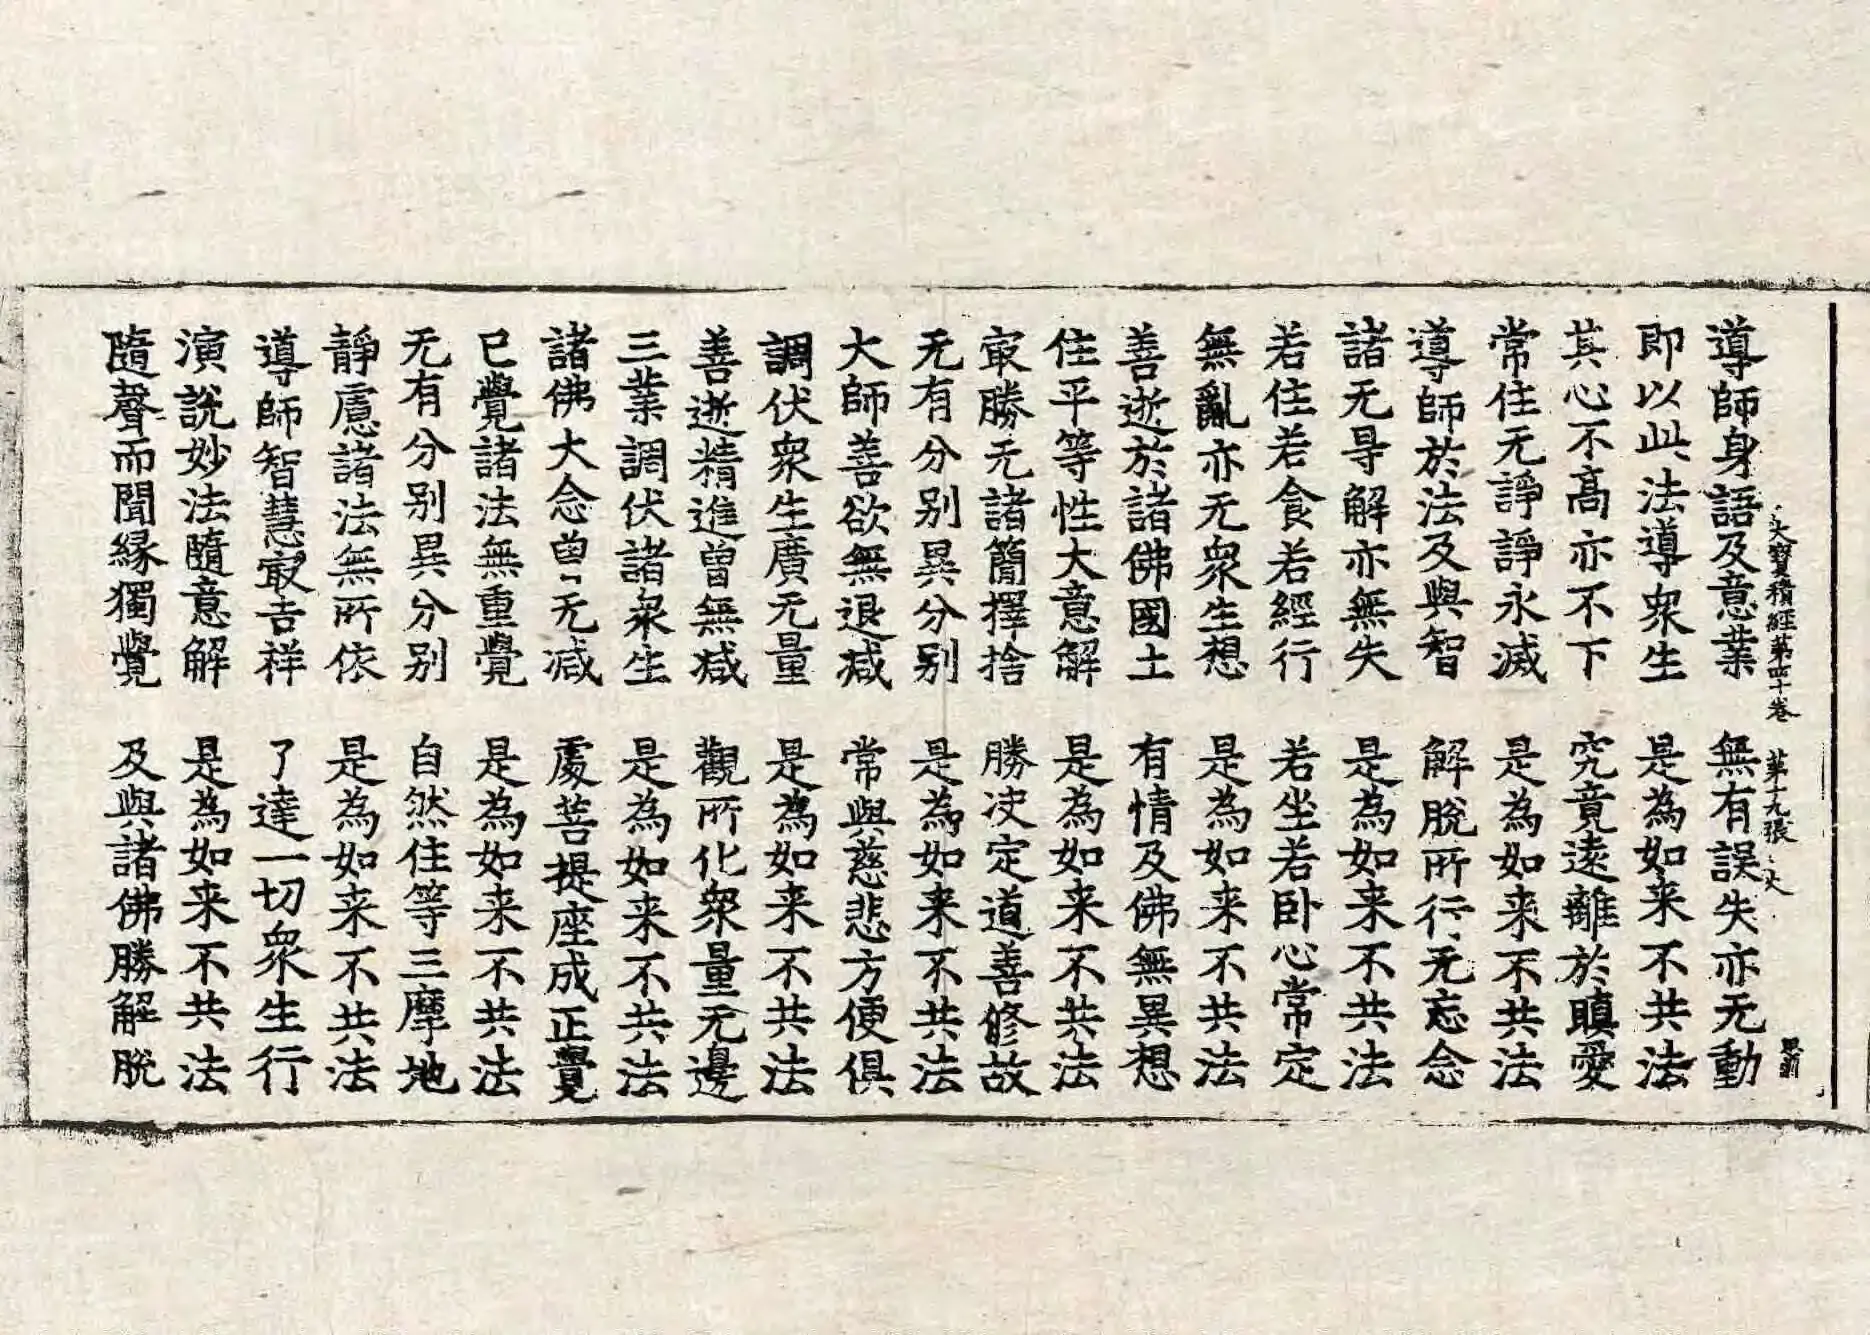 大寶積經第四十卷 第十九張 大
導師身語及意業 無有誤失亦无動
即以此法導衆生 是為如来不共法
其心不高亦不下 究竟遠離於瞋愛
常住无諍諍永滅 是為如来不共法
導師於法及與智 解脫所行无忘念
諸无㝵解亦無失 是為如来不共法
若住若食若經行 若坐若卧心常定
無亂亦无衆生想 是為如来不共法
善逝於諸佛國土 有情及佛無異想
住平等性大意解 是為如来不共法
㝡勝无諸簡擇捨 勝决定道善修故
无有分别異分别 是為如来不共法
大師善欲無退減 常與慈悲方便俱
調伏衆生廣无量 是為如来不共法
善逝精進曾無減 觀所化衆量无邊
三業調伏諸衆生 是為如来不共法
諸佛大念曾无減 處菩提座成正覺
已覺諸法無重覺 是為如来不共法
无有分别異分别 自然住等三摩地
靜慮諸法無所依 是為如来不共法
導師智慧㝡吉祥 了達一切衆生行
演說妙法隨意解 是為如来不共法
隨聲而聞緣獨覺 及與諸佛勝解脫